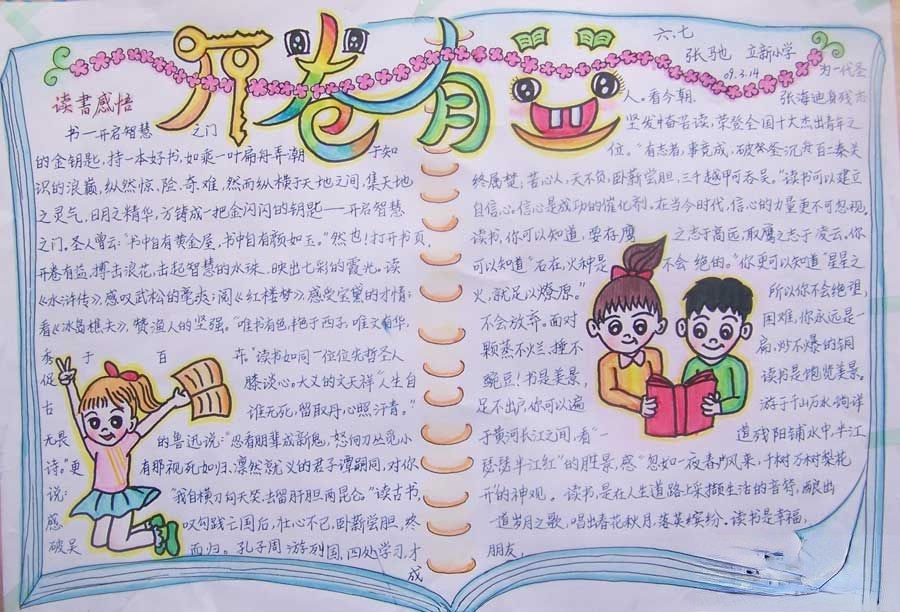 开卷有益
六、七
张驰 立新小学
09.3.14
读书感悟
书一开启智慧 之门
的金钥匙,持一本好书,如乘一叶扁舟弄潮 于知
识的浪巅,纵然惊、险、奇、难,然而纵横于天地之间,集天地
之灵气,日月之精华,方铸成一把金闪闪的钥匙——开启智慧
之门。圣人曾云:“书中自有黄金屋,书中自有颜如玉。”然也!打开书页,
开卷有益,搏击浪花,击起智慧的水珠,映出七彩的霞光。读
《水浒传》,感叹武松的豪爽;阅《红楼梦》,感受宝黛的才情;
看《冰岛渔夫》,赞渔人的坚强。“唯书有色,艳于西子,唯文有华,
秀 于 百 卉。”读书如同一位位先哲圣人
促 膝谈心。大义的文天祥“人生自
古 谁无死,留取丹心照汗青。”
无畏 的鲁迅说:“忍看朋辈成新鬼,怒向刀丛觅小
诗。”更 有那视死如归,凛然就义的君子谭嗣同,对你
说: “我自横刀向天笑,去留肝胆两昆仑。”读古书,
感 叹勾践亡国后,壮心不已,卧薪尝胆,终
破吴 而归。孔子周游列国,四处学习,才
成
为一代圣
人。看今朝, 张海迪身残志
坚发奋苦读,荣登全国十大杰出青年之
位。“有志者,事竟成,破釜沉舟百二秦关
终属楚,苦心人,天不负,卧薪尝胆,三千越甲可吞吴。”读书可以建立
自信心。信心是成功的催化剂。在当今时代,信心的力量更不可忽视。
读书,你可以知道,要存鹰 之志于高远,取鹰之志于凌云。你
可以知道“石在,火种是 不会 绝的。”你更可以知道“星星之
火,就足以燎原。” 所以你不会绝望,
不会放弃。面对 困难,你永远是一
颗蒸不烂、捶不 扁,炒不爆的铜
豌豆!书是美景, 读书是饱览美景。
足不出户,你可以遍 游于千山万水,徜徉
于黄河长江之间,看“一 道残阳铺水中,半江
瑟瑟半江红”的胜景,感“忽如一夜春风来,千树万树梨花
开”的神观。读书,是在人生道路上采撷生活的音符,酿出
一道岁月之歌,唱出春花秋月,落英缤纷。读书是幸福,
朋友,